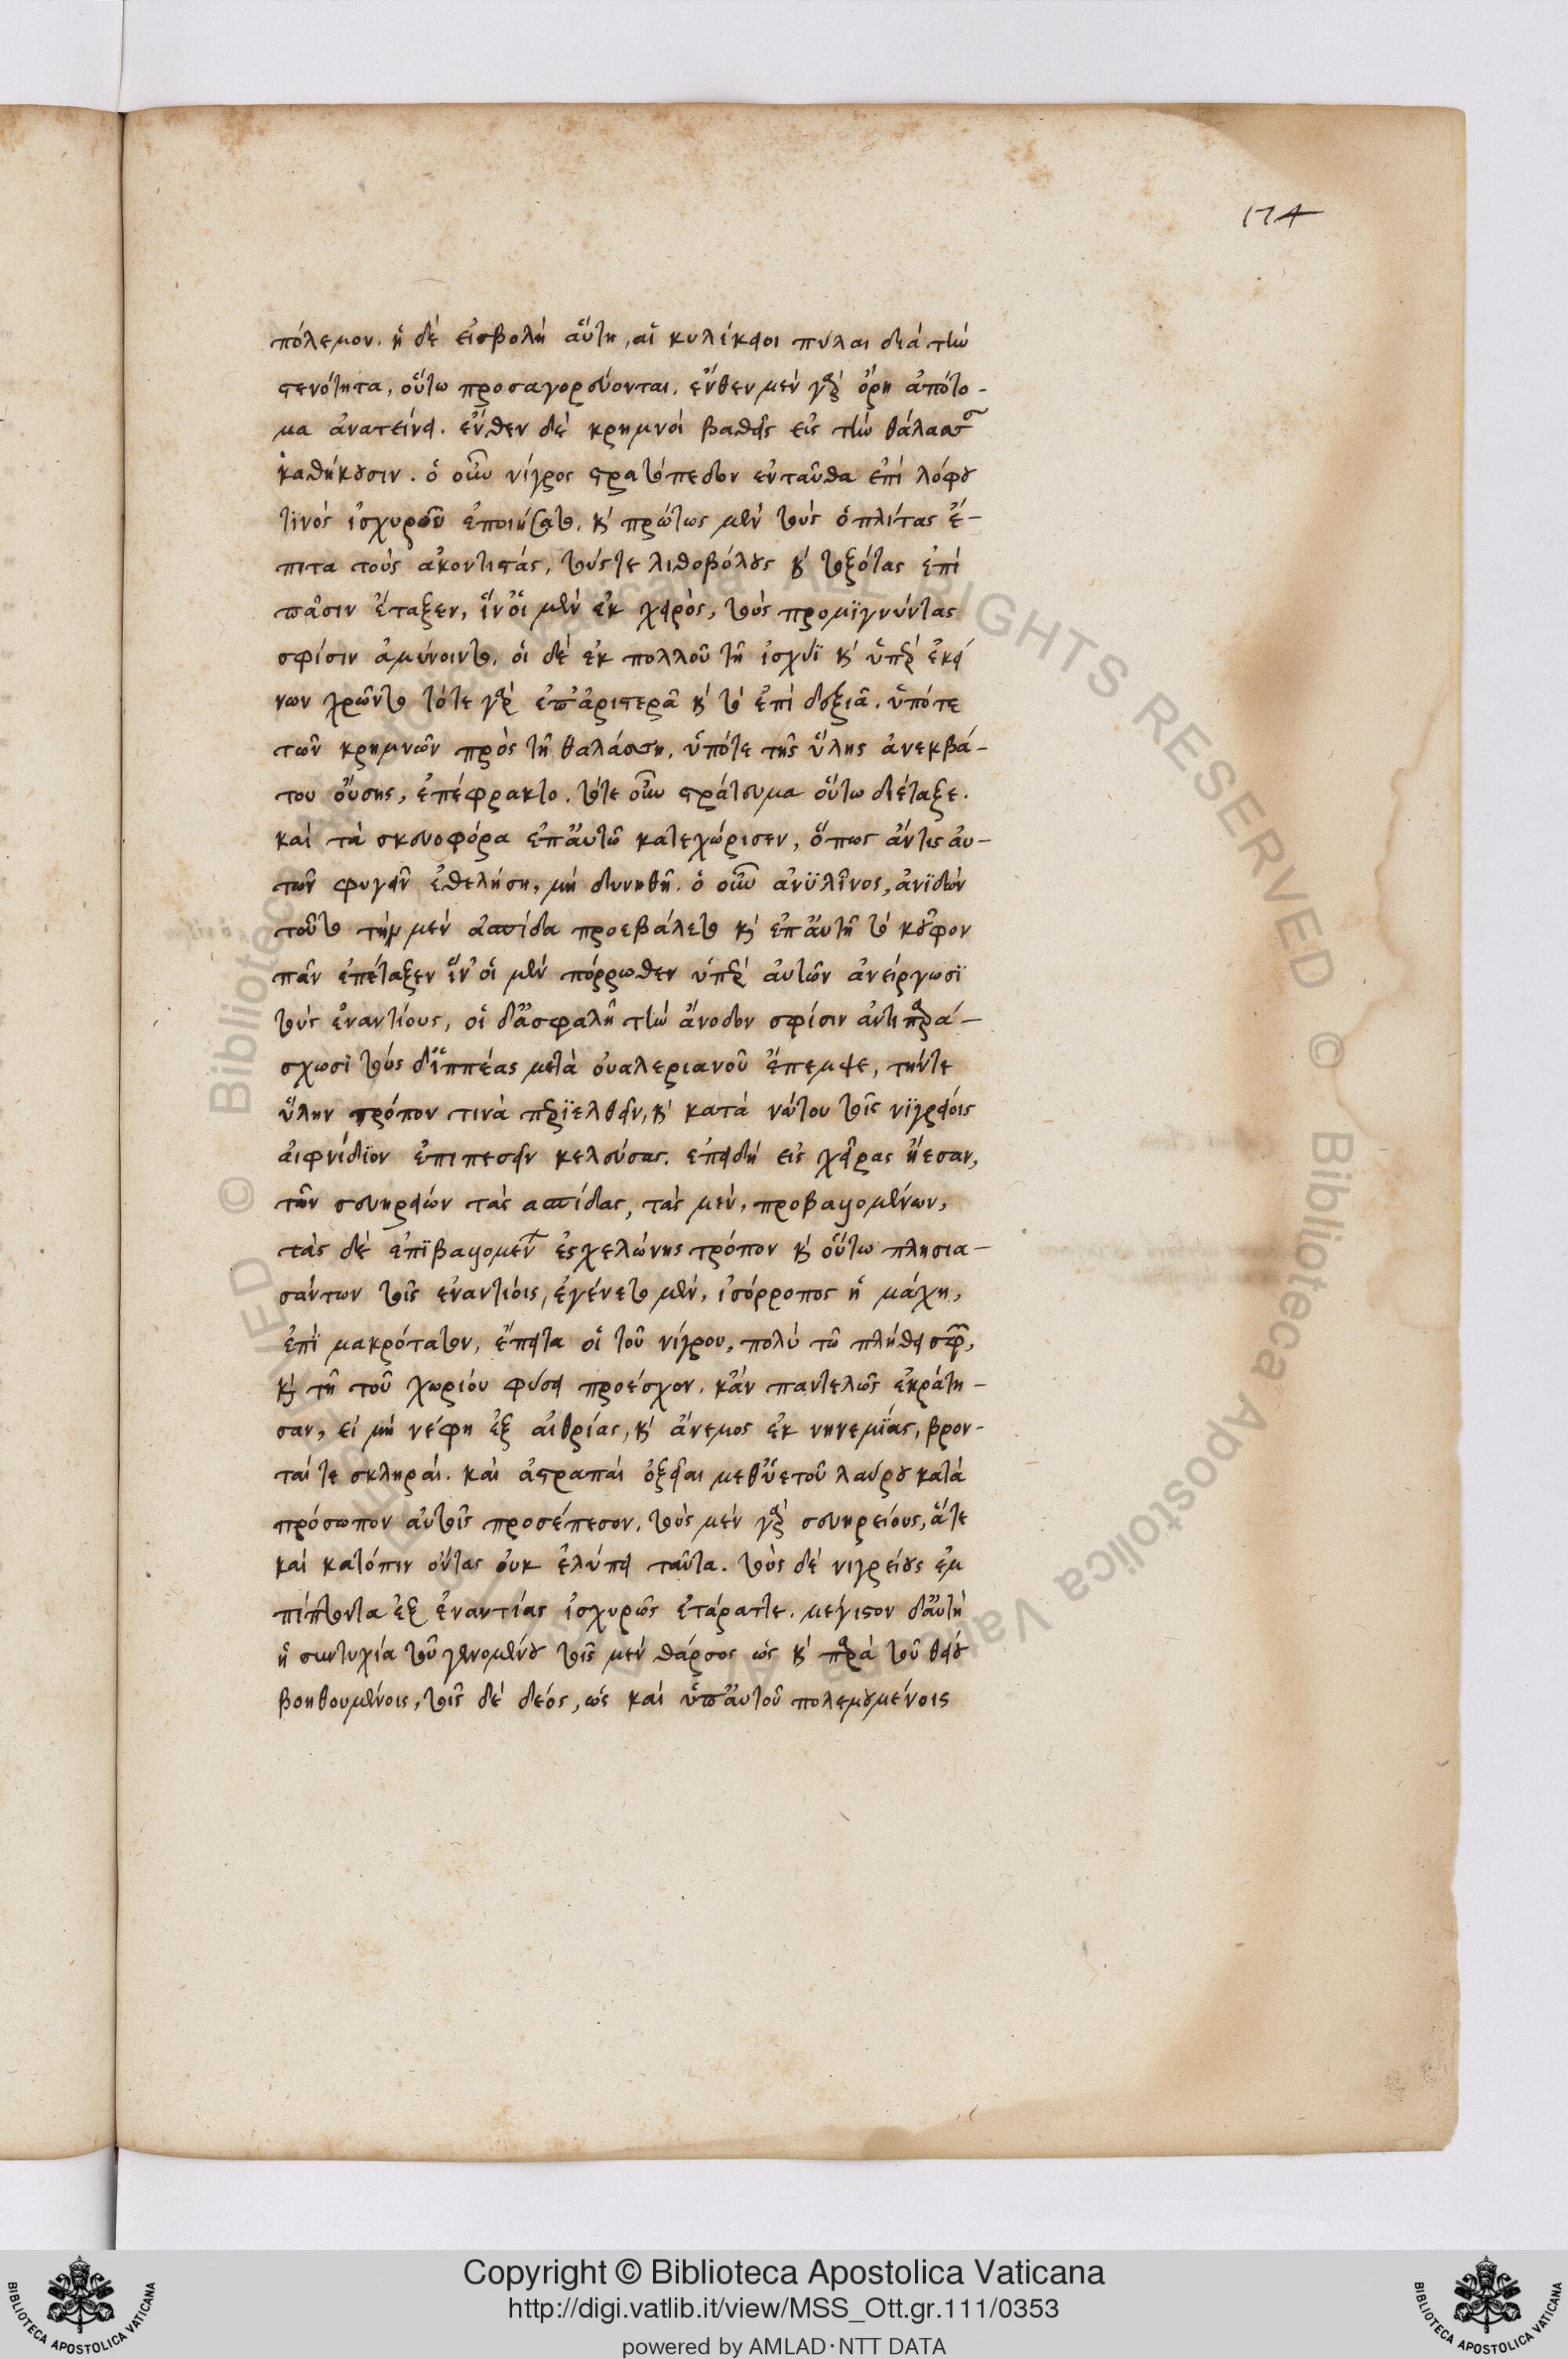 174
πόλεμον. ἡ δὲ εἰσβολὴ αὕτη, αἱ κυλίκειοι πύλαι διὰ τὴν
στενότητα, οὕτω προσαγορεύονται. ἔνθεν μὲν γὰρ ὄρη ἀπότο-
μα ἀνατείνει. ἔνθεν δὲ κρημνοὶ βαθεῖς εἰς τὴν θάλασσ
καθήκουσιν. ὁ οὖν νίγρος στρατόπεδον ἐνταῦθα ἐπὶ λόφου
τϊνὸς ἰσχυροῦ ἐποιήσατο, καὶ πρώτως μὲν τοὺς ὁπλίτας ἔ-
πιτα τοὺς ἀκοντιστάς, τούς τε λιθοβόλους καὶ τοξότας ἐπὶ
πᾶσιν ἔταξεν, ἵν οἱ μὲν ἐκ χειρὸς, τοὺς προμϊγνύντας
σφίσιν ἀμύνοιντο, οἱ δὲ ἐκ πολλοῦ τῆ ἰσχύϊ καὶ ὑπὲρ ἐκεί
νων χρῶντο τότε γὰρ ἐπ ἀριστερᾶ καὶ τὸ ἐπὶ δεξιᾶ. ὑπότε
τῶν κρημνῶν πρὸς τῆ θαλάσση, ὑπότε τῆς ὕλης ἀνεκβά-
του οὔσης, ἐπέφρακτο. τότε οὖν στράτευμα οὕτω διέταξε.
καὶ τὰ σκευοφόρα ἐπ αὐτῶ κατεχώρισεν, ὅπως ἄντις αὐ-
τῶν φυγεῖν ἐθελήση, μὴ δυνηθῆ. ὁ οὖν ἀνϋλῖνος, ἀνϊδὼν
τοῦτο τὴν μὲν ἀσπίδα προεβάλετο καὶ ἐπ αὐτῆ τὸ κοῦφον
πᾶν ἐπέταξεν ἵν οἱ μὲν πόρρωθεν ὑπὲρ αὐτῶν ἀνείργωσϊ
τοὺς ἐναντίους, οἱ δ ἀσφαλῆ τὴν ἄνοδον σφίσιν ἀντιπαρά-
σχωσϊ τοὺς δ ἱππέας μετὰ οὐαλεριανοῦ ἔπεμψε, τήντε
ὕλην τρόπον τινὰ περϊελθεῖν, καὶ κατὰ νώτου τοῖς νϊγρείοις
αἰφνίδϊον ἐπιπεσεῖν κελεύσας. ἐπειδὴ εἰς χεῖρας ἤεσαν,
τῶν σευηρείων τὰς ἀσπίδας, τὰς μὲν, προβαλλομένων,
τὰς δὲ ἐπϊβαλλομένων ἐς χελώνης τρόπον καὶ οὕτω πλησια-
σάντων τοῖς ἐναντίοις, ἐγένετο μὲν, ἰσόρροπος ἡ μάχη,
ἐπϊ μακρότατον, ἔπειτα οἱ τοῦ νίγρου, πολὺ τῶ πλήθει σφῶν,
καὶ τῆ τοῦ χωρίου φύσει προέσχον. κἂν παντελῶς ἐκράτη-
σαν, εἰ μὴ νέφη ἐξ αἰθρίας, καὶ ἄνεμος ἐκ νηνεμίας, βρον-
ταί τε σκληραὶ. καὶ ἀστραπαὶ ὀξεῖαι μεθ ὑετοῦ λαύρου κατὰ
πρόσωπον αὐτοῖς προσέπεσον. τοὺς μὲν γὰρ σευηρείους, ἅτε
καὶ κατόπιν ὄντας οὐκ ἐλύπει ταῦτα. τοὺς δὲ νιγρείους ἐμ
πίπτοντα ἐξ ἐναντίας ἰσχυρῶς ἐτάραττε. μέγιστον δ αὐτὴ
ἡ συντυχία τοῦ γενομένου τοῖς μὲν θάρσος ὡς καὶ παρὰ τοῦ θείου
βοηθουμένοις, τοῖς δὲ δέος, ὡς καὶ ὑπ αὐτοῦ πολεμουμένοις
Copyright © Biblioteca Apostolica Vaticana
http://digi.vatlib.it/view/MSS_Ott.gr.111/0353
powered by AMLAD·NTT DATA